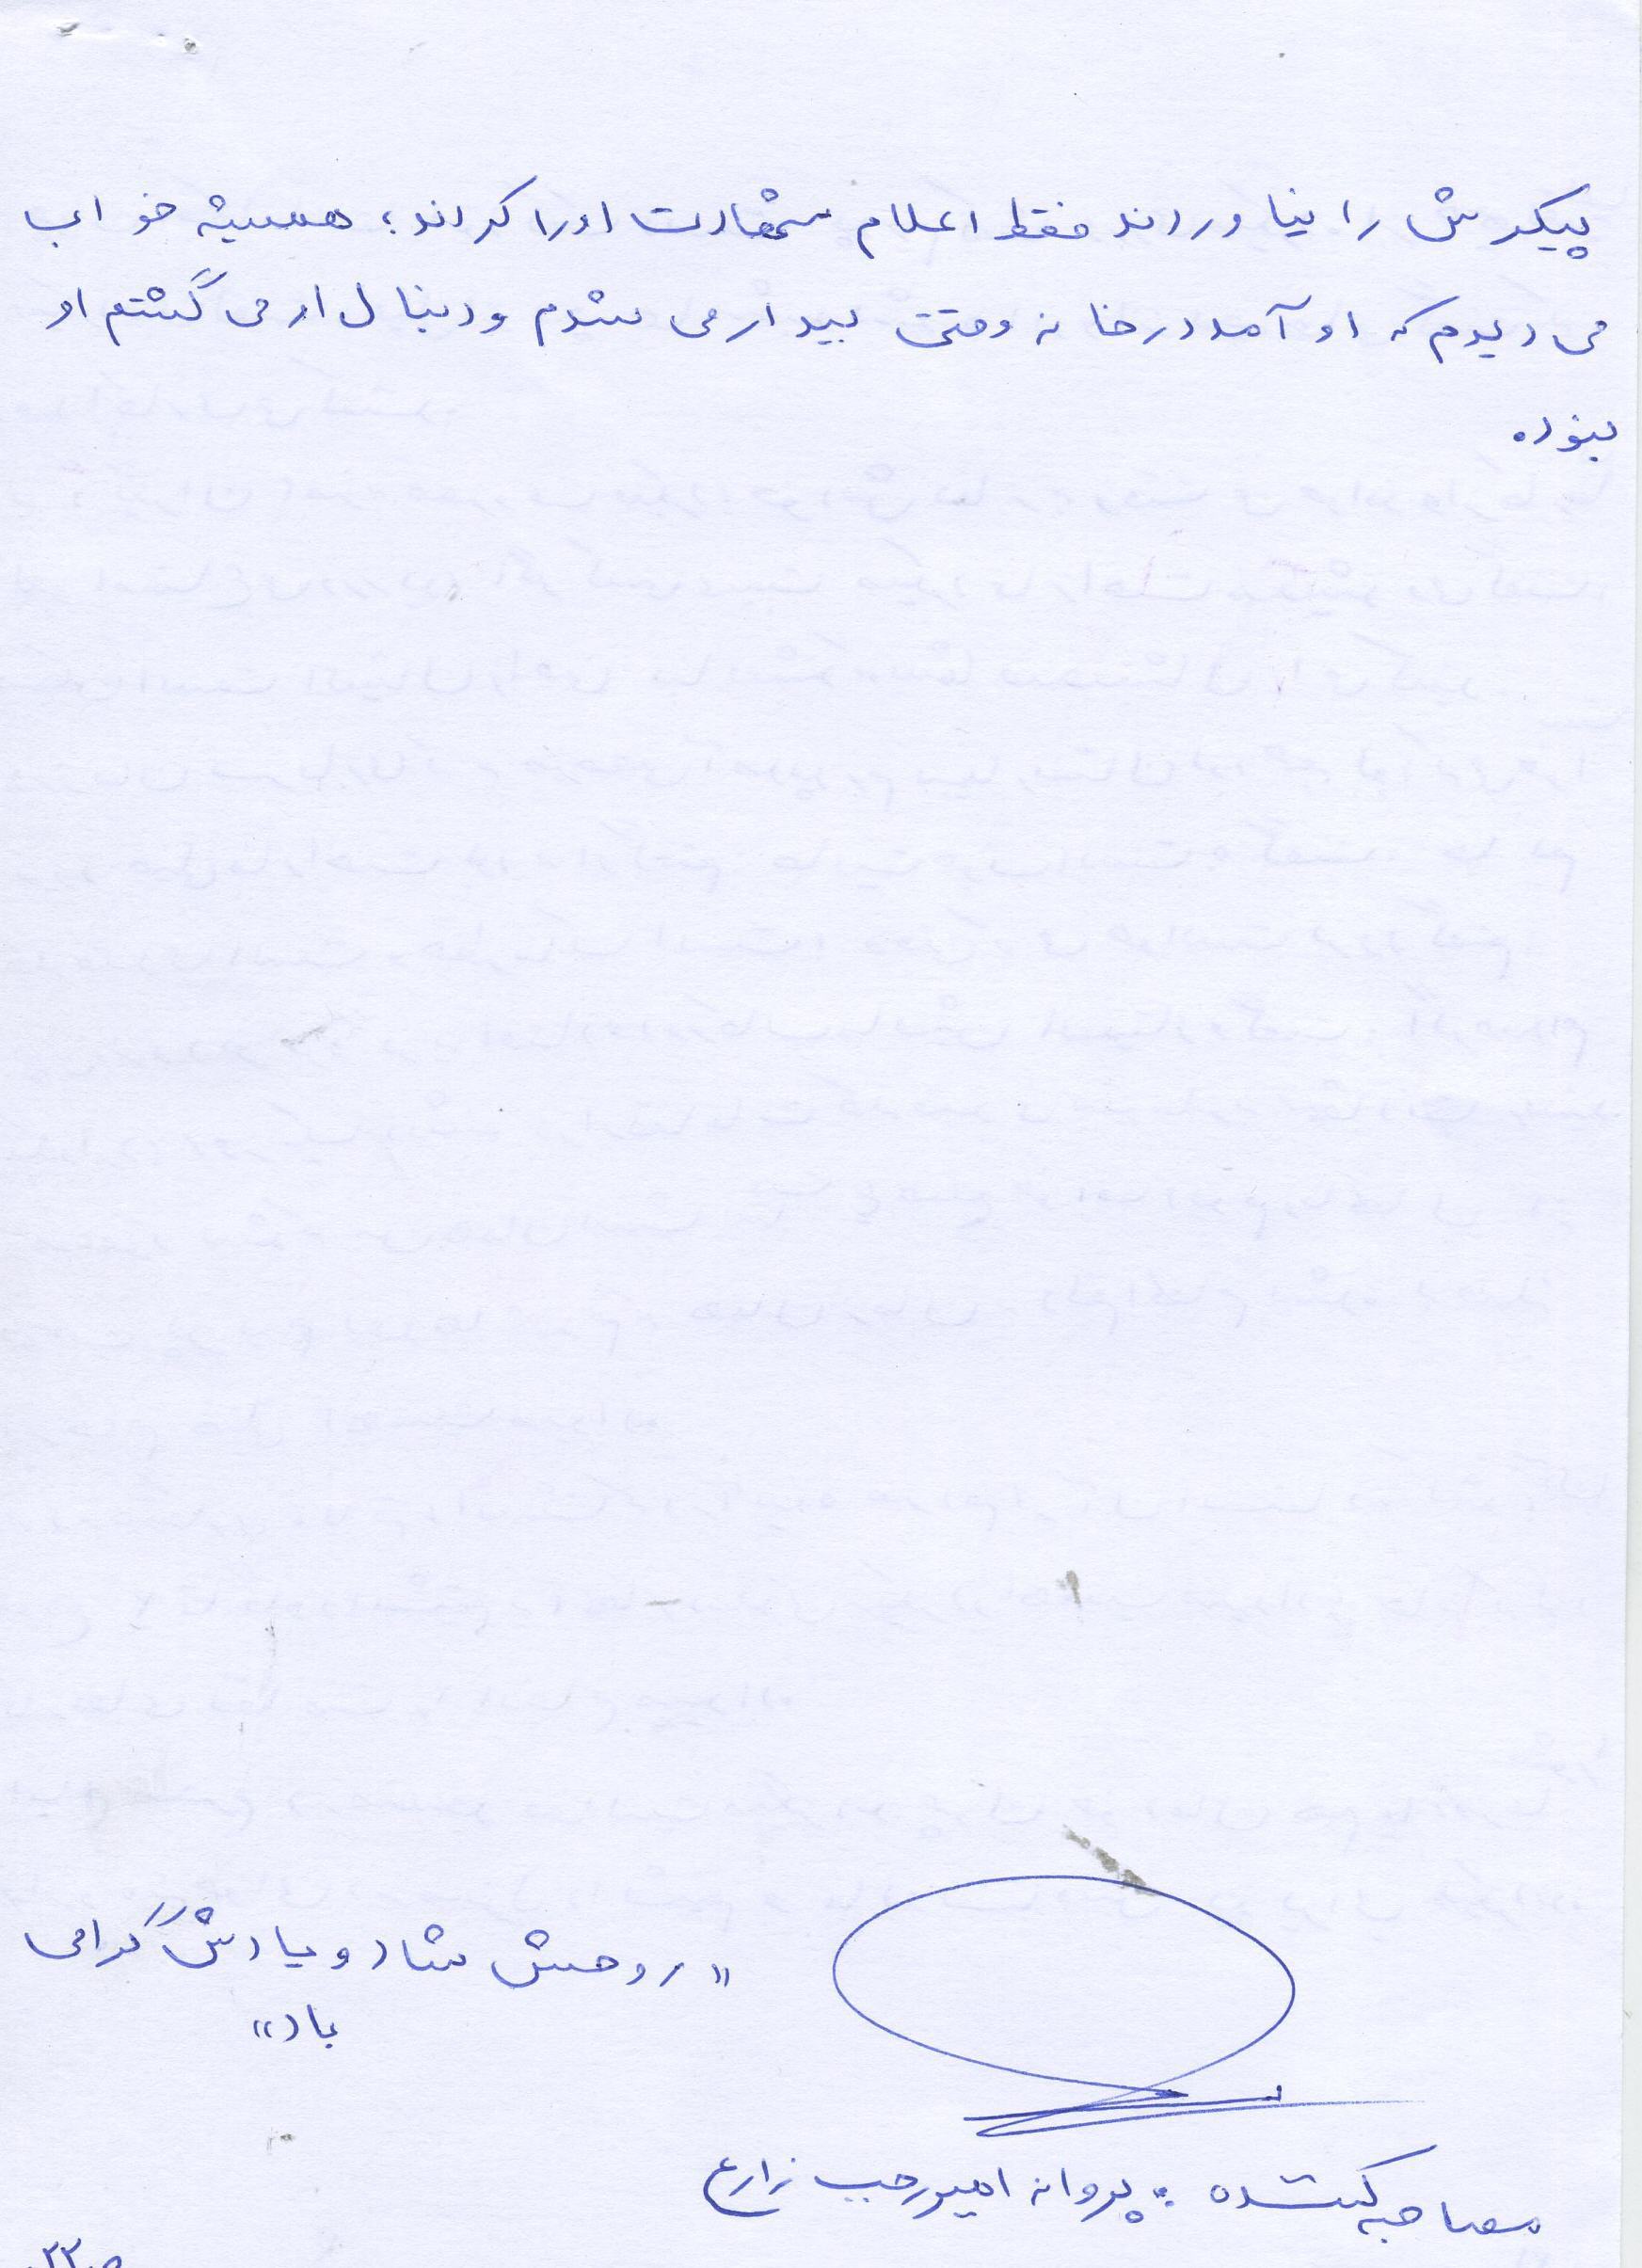 پیکرش را نیاوردند فقط اعلام شهادت او را کردند؛ همیشه خواب
می دیدم که او آمد در خانه وقتی بیدار می شدم و دنبال او می گشتم او
نبود.
"روحش شاد و یادش گرامی
باد"
مصاحبه کننده : پروانه امیر رجب زارع
ص ۲۲